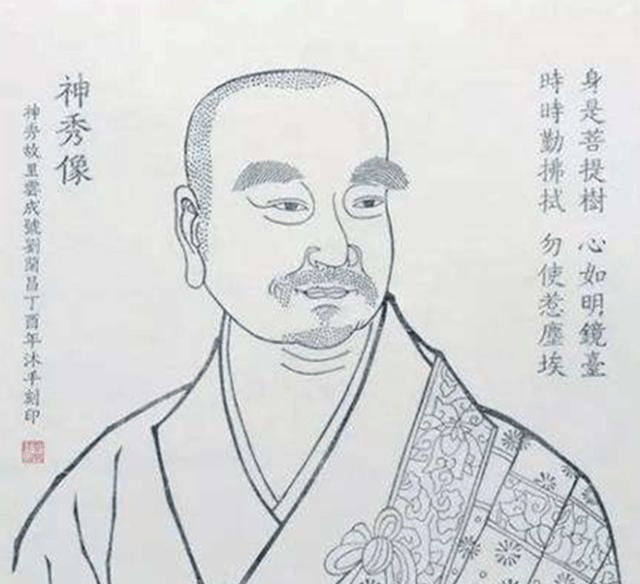 身是菩提樹 心如明鏡臺
時時勤拂拭 勿使惹塵埃
神秀像
神秀故里雲成號劉蘭昌丁酉年沐手刻印